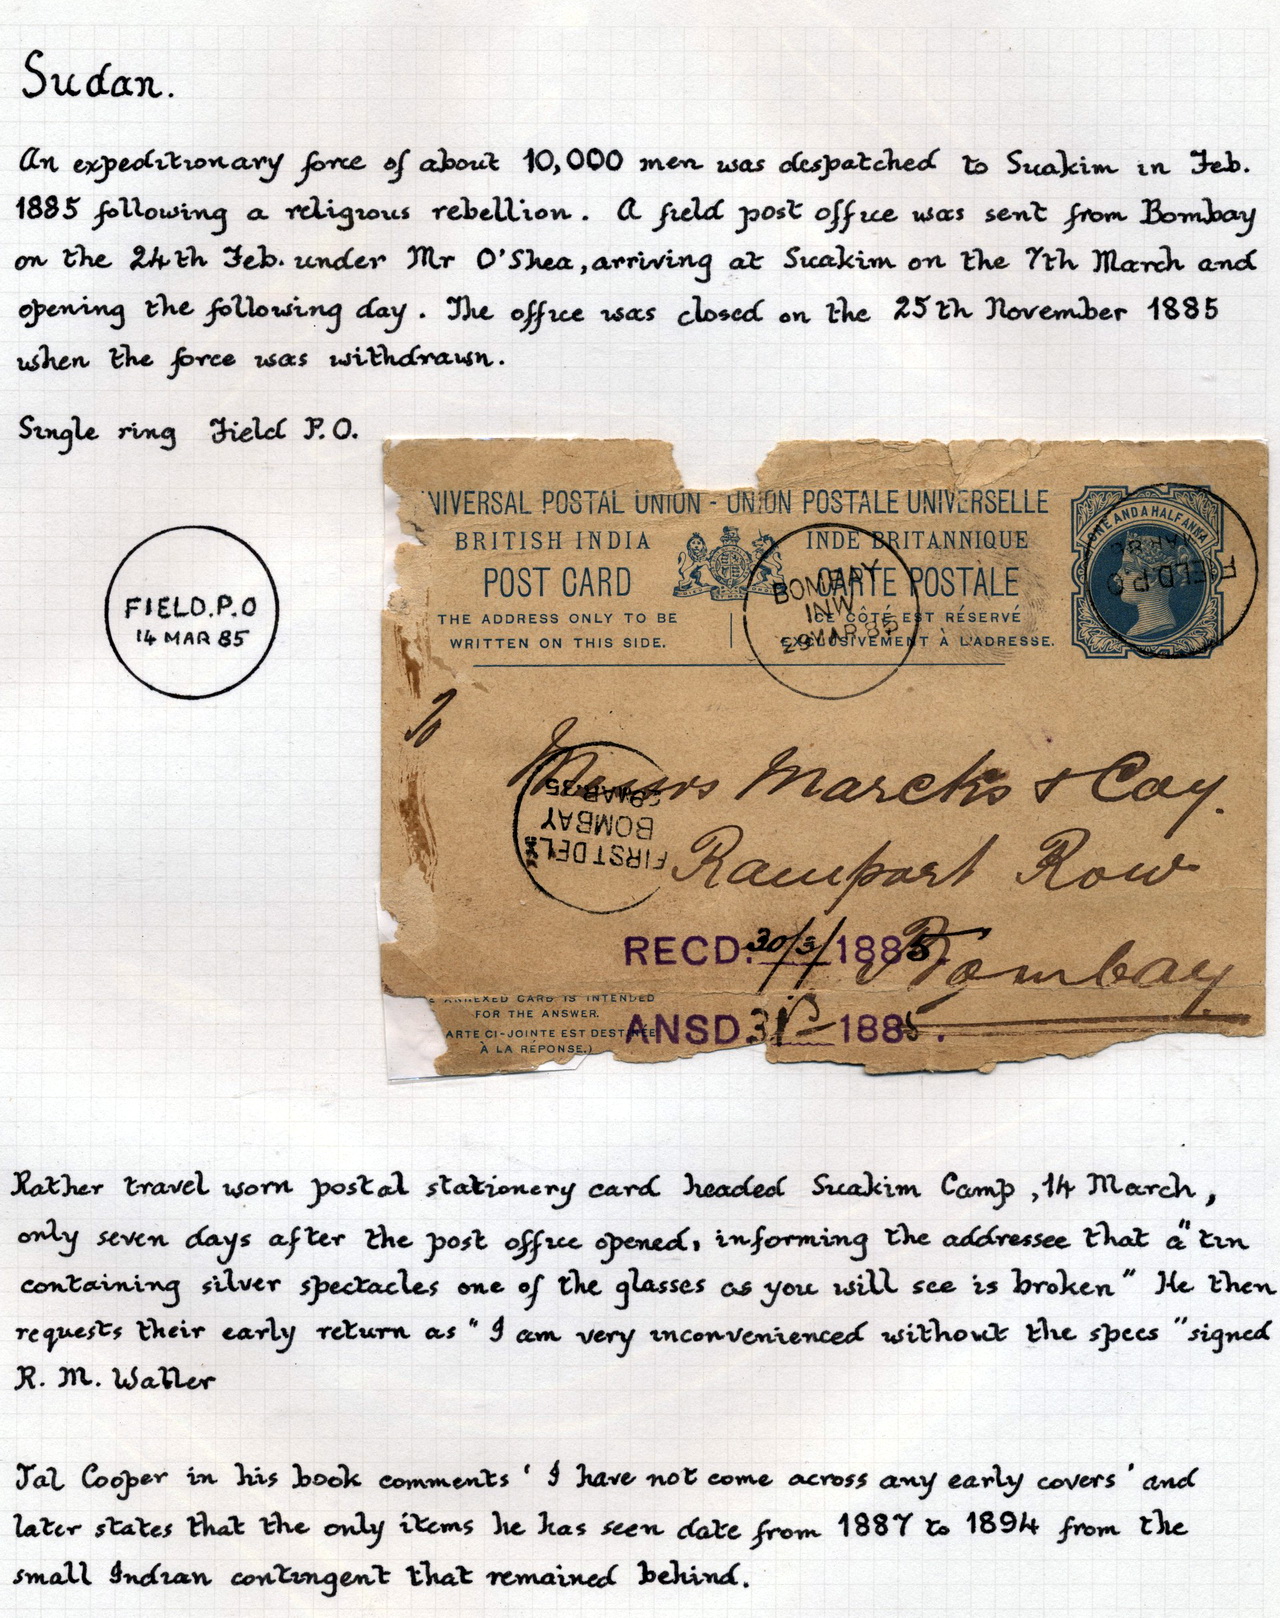 Sudan.
An expeditionary force of about 10,000 men was despatched to Suakim in Feb.
1885 following a religious rebellion. A field post office was sent from Bombay
on the 24th Feb. under Mr O'Shea, arriving at Suakim on the 7th March and
opening the following day. The office was closed on the 25th November 1885
when the force was withdrawn.
Single ring Field P.O.
FIELD.P.O
14 MAR 85
NIVERSAL POSTAL UNION - UNION POSTALE UNIVERSELLE
BRITISH INDIA
INDE BRITANNIQUE
POST CARD
CARTE POSTALE
THE ADDRESS ONLY TO BE
WRITTEN ON THIS SIDE.
CE CÔTÉ EST RÉSERVÉ
EXCLUSIVEMENT À L'ADRESSE.
ONE AND A HALF ANNA
FIELD.P.O
MAR 85
BOMBAY
INW
29 MAR 85
To
Messrs Marcks & Coy.
Rampart Row
Bombay
FIRST DEL
BOMBAY
29 MAR. 85
RECD. 30/3/ 1885.
ANSD. 31 1885.
E ANNEXED CARD IS INTENDED
FOR THE ANSWER.
ARTE CI-JOINTE EST DESTINÉE
À LA RÉPONSE.)
Rather travel worn postal stationery card headed Suakim Camp, 14 March,
only seven days after the post office opened, informing the addressee that a "tin
containing silver spectacles one of the glasses as you will see is broken" He then
requests their early return as "I am very inconvenienced without the specs" signed
R. M. Waller
Jal Cooper in his book comments 'I have not come across any early covers' and
later states that the only items he has seen date from 1887 to 1894 from the
small Indian contingent that remained behind.